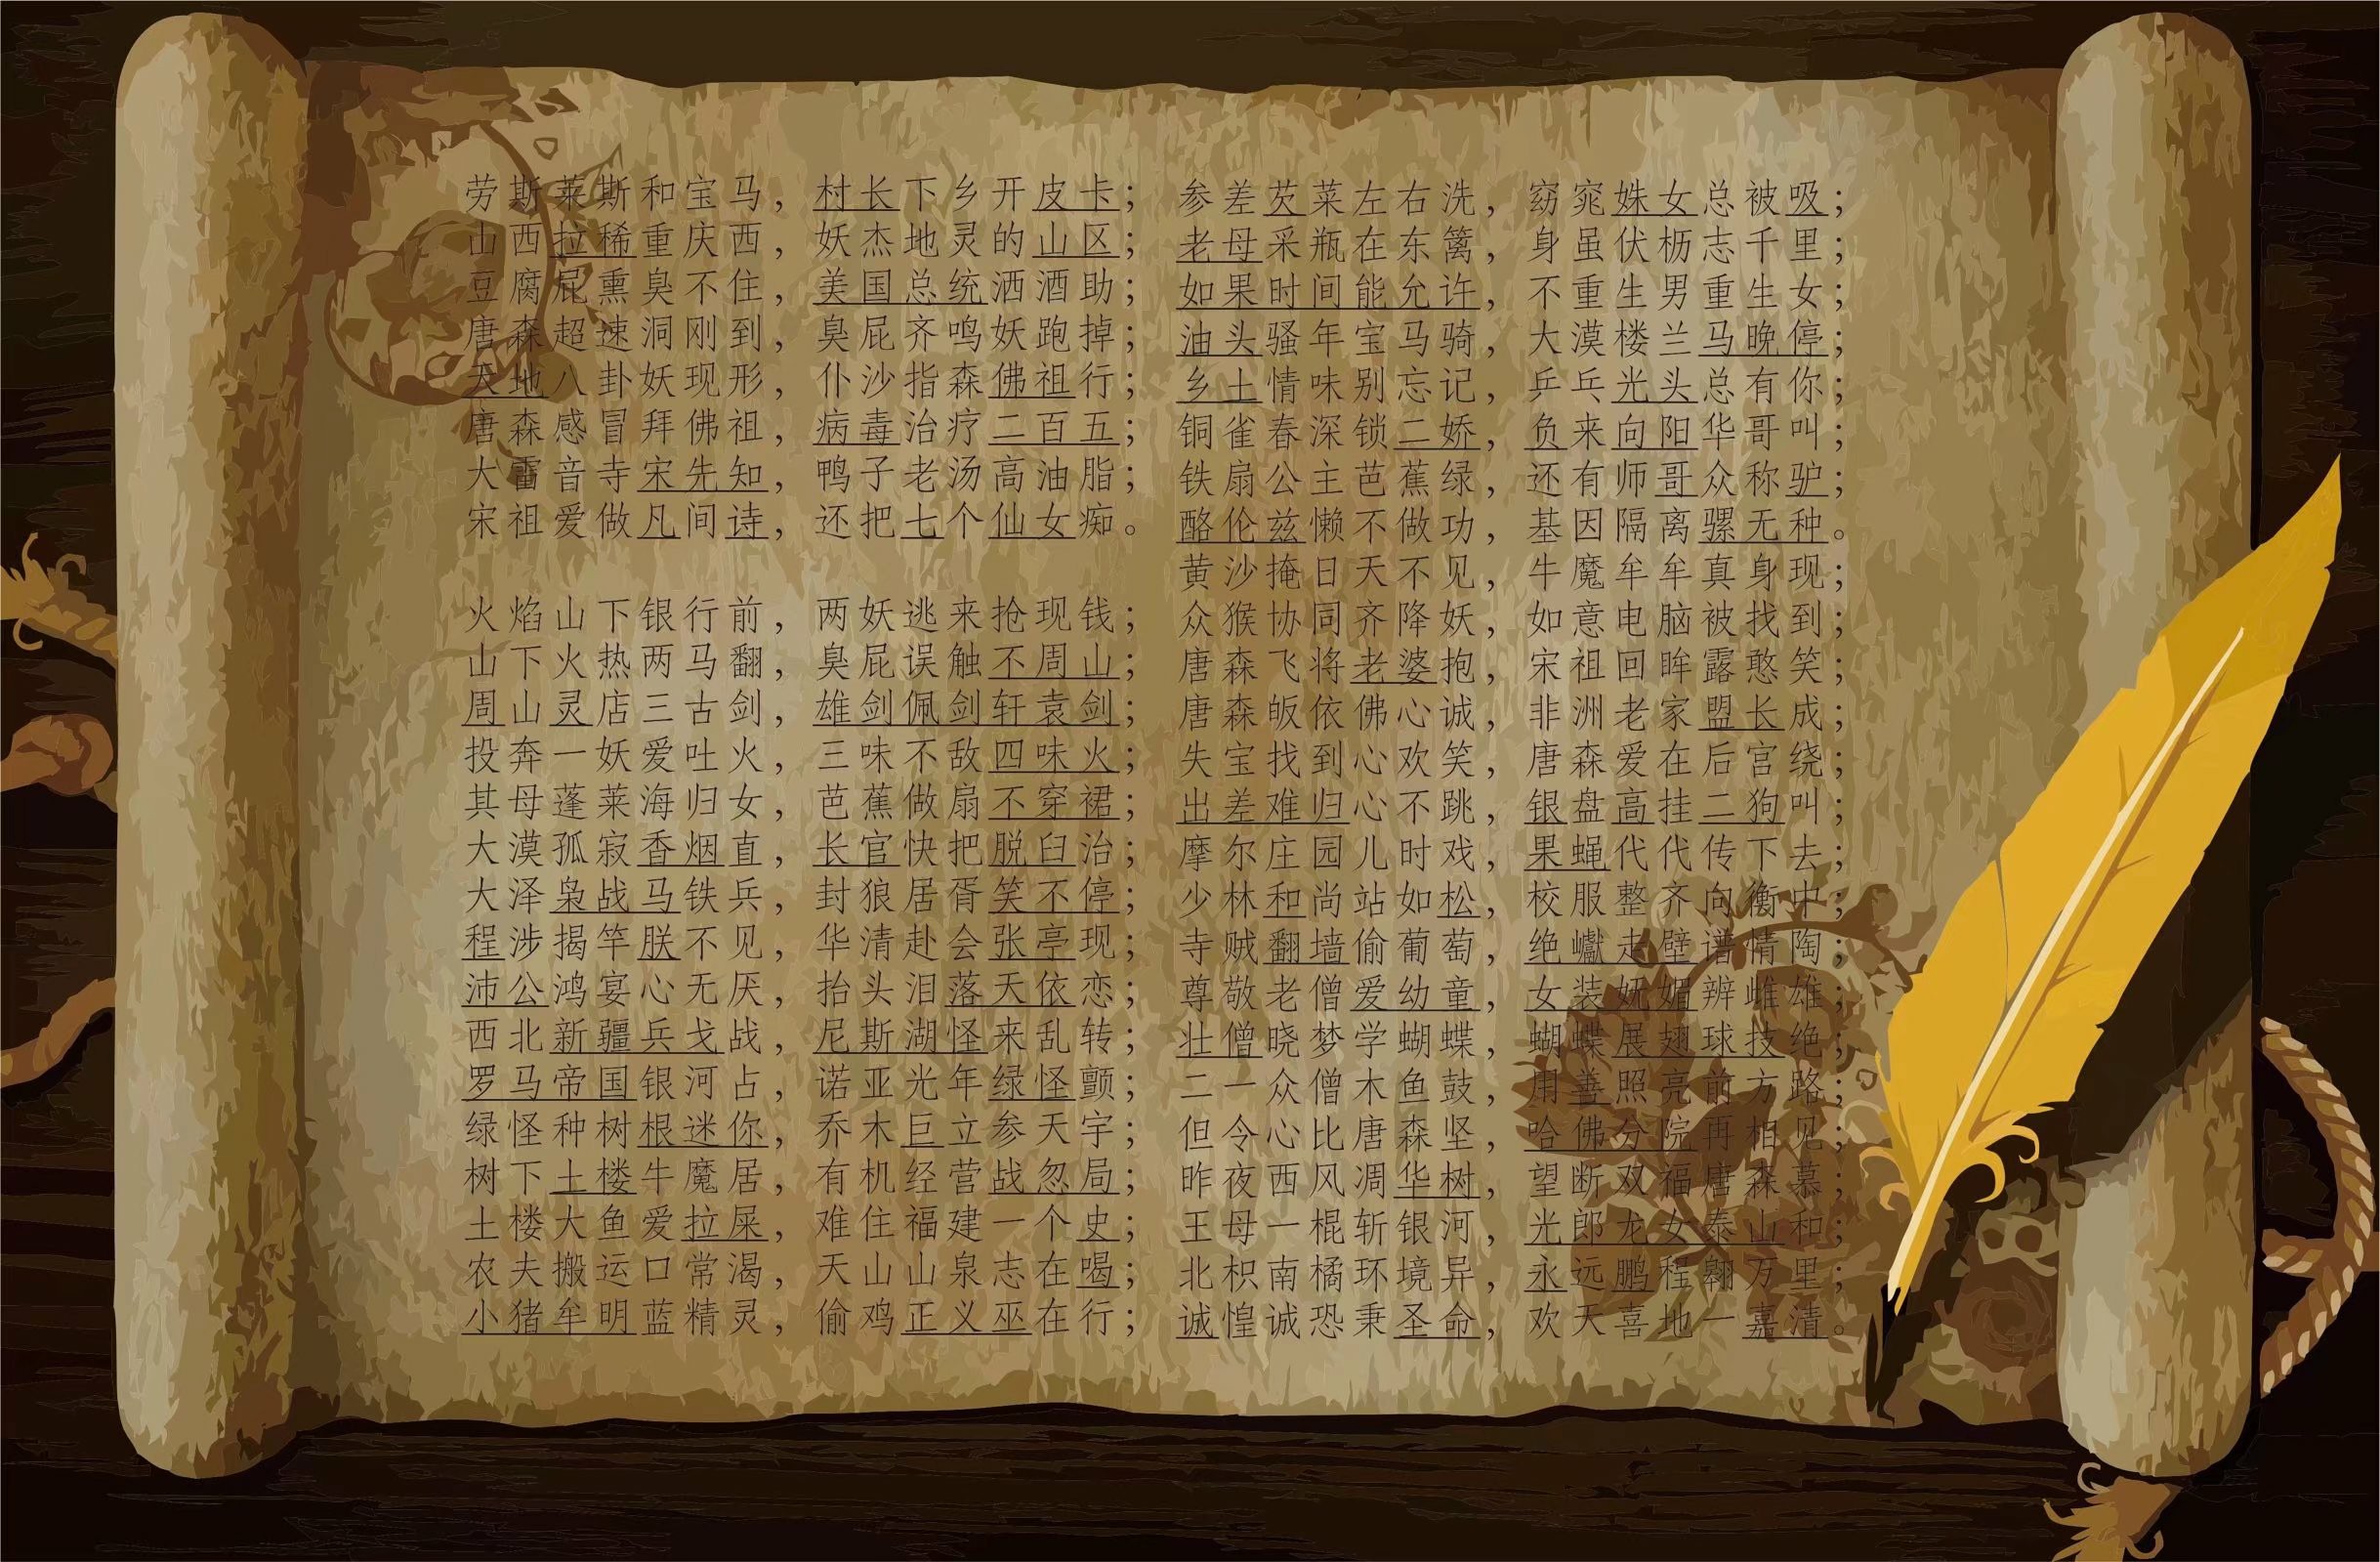 劳斯莱斯和宝马，村长下乡开皮卡；
山西拉稀重庆西，妖杰地灵的山区；
豆腐屁熏臭不住，美国总统洒酒助；
唐森超速洞刚到，臭屁齐鸣妖跑掉；
天地八卦妖现形，仆沙指森佛祖行；
唐森感冒拜佛祖，病毒治疗二百五；
大雷音寺宋先知，鸭子老汤高油脂；
宋祖爱做凡间诗，还把七个仙女痴。
火焰山下银行前，两妖逃来抢现钱；
山下火热两马翻，臭屁误触不周山；
周山灵店三古剑，雄剑佩剑轩袁剑；
投奔一妖爱吐火，三味不敌四味火；
其母蓬莱海归女，芭蕉做扇不穿裙；
大漠孤寂香烟直，长官快把脱臼治；
大泽枭战马铁兵，封狼居胥笑不停；
程涉揭竿朕不见，华清赴会张亭现；
沛公鸿宴心无厌，抬头泪落天依恋；
西北新疆兵戈战，尼斯湖怪来乱转；
罗马帝国银河占，诺亚光年绿怪颤；
绿怪种树根迷你，乔木巨立参天宇；
树下土楼牛魔居，有机经营战忽局；
土楼大鱼爱拉屎，难住福建一个史；
农夫搬运口常渴，天山山泉志在喝；
小猪牟明蓝精灵，偷鸡正义巫在行；
参差芡菜左右洗，窈窕姝女总被吸；
老母采瓶在东篱，身虽伏枥志千里；
如果时间能允许，不重生男重生女；
油头骚年宝马骑，大漠楼兰马晚停；
乡土情味别忘记，乒乓光头总有你；
铜雀春深锁二娇，负来向阳华哥叫；
铁扇公主芭蕉绿，还有师哥众称驴；
酪伦兹懒不做功，基因隔离骡无种。
黄沙掩日天不见，牛魔牟牟真身现；
众猴协同齐降妖，如意电脑被找到；
唐森飞将老婆抱，宋祖回眸露憨笑；
唐森皈依佛心诚，非洲老家盟长成；
失宝找到心欢笑，唐森爱在后宫绕；
出差难归心不跳，银盘高挂二狗叫；
摩尔庄园儿时戏，果蝇代代传下去；
少林和尚站如松，校服整齐向衡中；
寺贼翻墙偷葡萄，绝巘走壁谱情陶；
尊敬老僧爱幼童，女装妩媚辨雌雄；
壮僧晓梦学蝴蝶，蝴蝶展翅球技绝；
二一众僧木鱼鼓，用善照亮前方路；
但令心比唐森坚，哈佛分院再相见；
昨夜西风凋华树，望断双福唐森慕；
王母一棍斩银河，光郎龙女泰山和；
北枳南橘环境异，永远鹏程翱万里；
诚惶诚恐秉圣命，欢天喜地一嘉清。